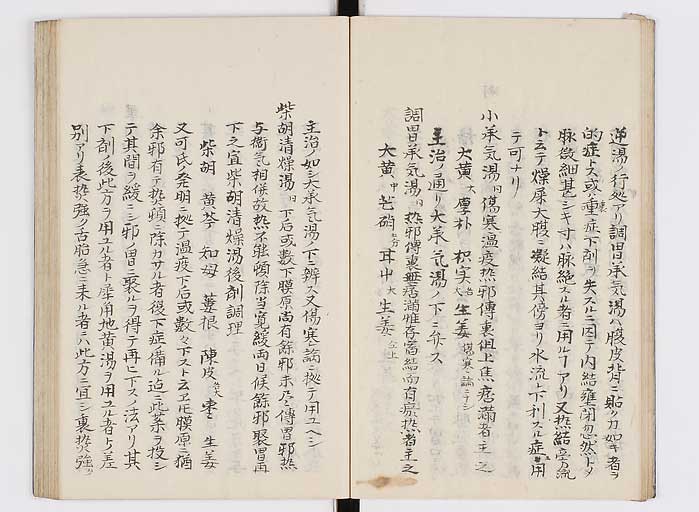 逆湯ノ行処アリ調胃承気湯ハ腹皮背ニ貼ツカ如キ者ヲ
的症トス或ハ重症下剤ヲ失スルニ因テ内結壅閉忽然トメ
脉微細甚シキ寸ハ脉絶スル者ニ用ルアリ又热結旁流
トテ燥屎大腹ニ凝結其傍ヨリ水流レ下利スル症用
テ可ナリ
小承気湯 曰 傷寒温疫热邪傳裏但上焦痞滿者主之
大黄 大 厚朴 枳実 生姜 傷寒論ニナシ
主治ノ通リ大承気湯ノ下ニ弁ス
調胃承気湯 曰 热邪傳裏無痞滿惟存宿結而有瘀热者主之
大黄 中 芒硝 甘中 大 生姜
主治ノ如シ大承気湯ノ下ニ辨ス又傷寒論ニ拠テ用ユヘシ
柴胡清燥湯 曰 下后或数下膜原尚有餘邪未尽傳胃邪热
与衛氣相併故热不能頓除当寬緩両日候餘邪聚胃再
下之宜柴胡清燥湯後剤調理
柴胡 黄芩 知母 蔞根 陳皮 棗 生姜
又可氏ノ発明ニ拠テ温疫下后或数々下ストモ膜原ニ猶
余邪有テ热頓ニ除カサル者後下症備ル迄ニ此薬ヲ投シ
テ其間ヲ緩ニシ邪ノ胃ニ聚ルヲ得テ再ヒ下ス法アリ其
下剤ノ後此方ヲ用ユル者ト犀角地黄湯ヲ用ユル者ト差
別アリ表热強ク舌胎急ニ来ル者ニハ此方ニ宜シ裏热強ク